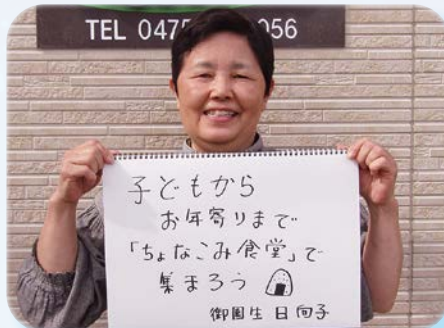 TEL 0475 056
子どもから
お年寄りまで
「ちょなこみ食堂」で
集まろう
御園生 日向子